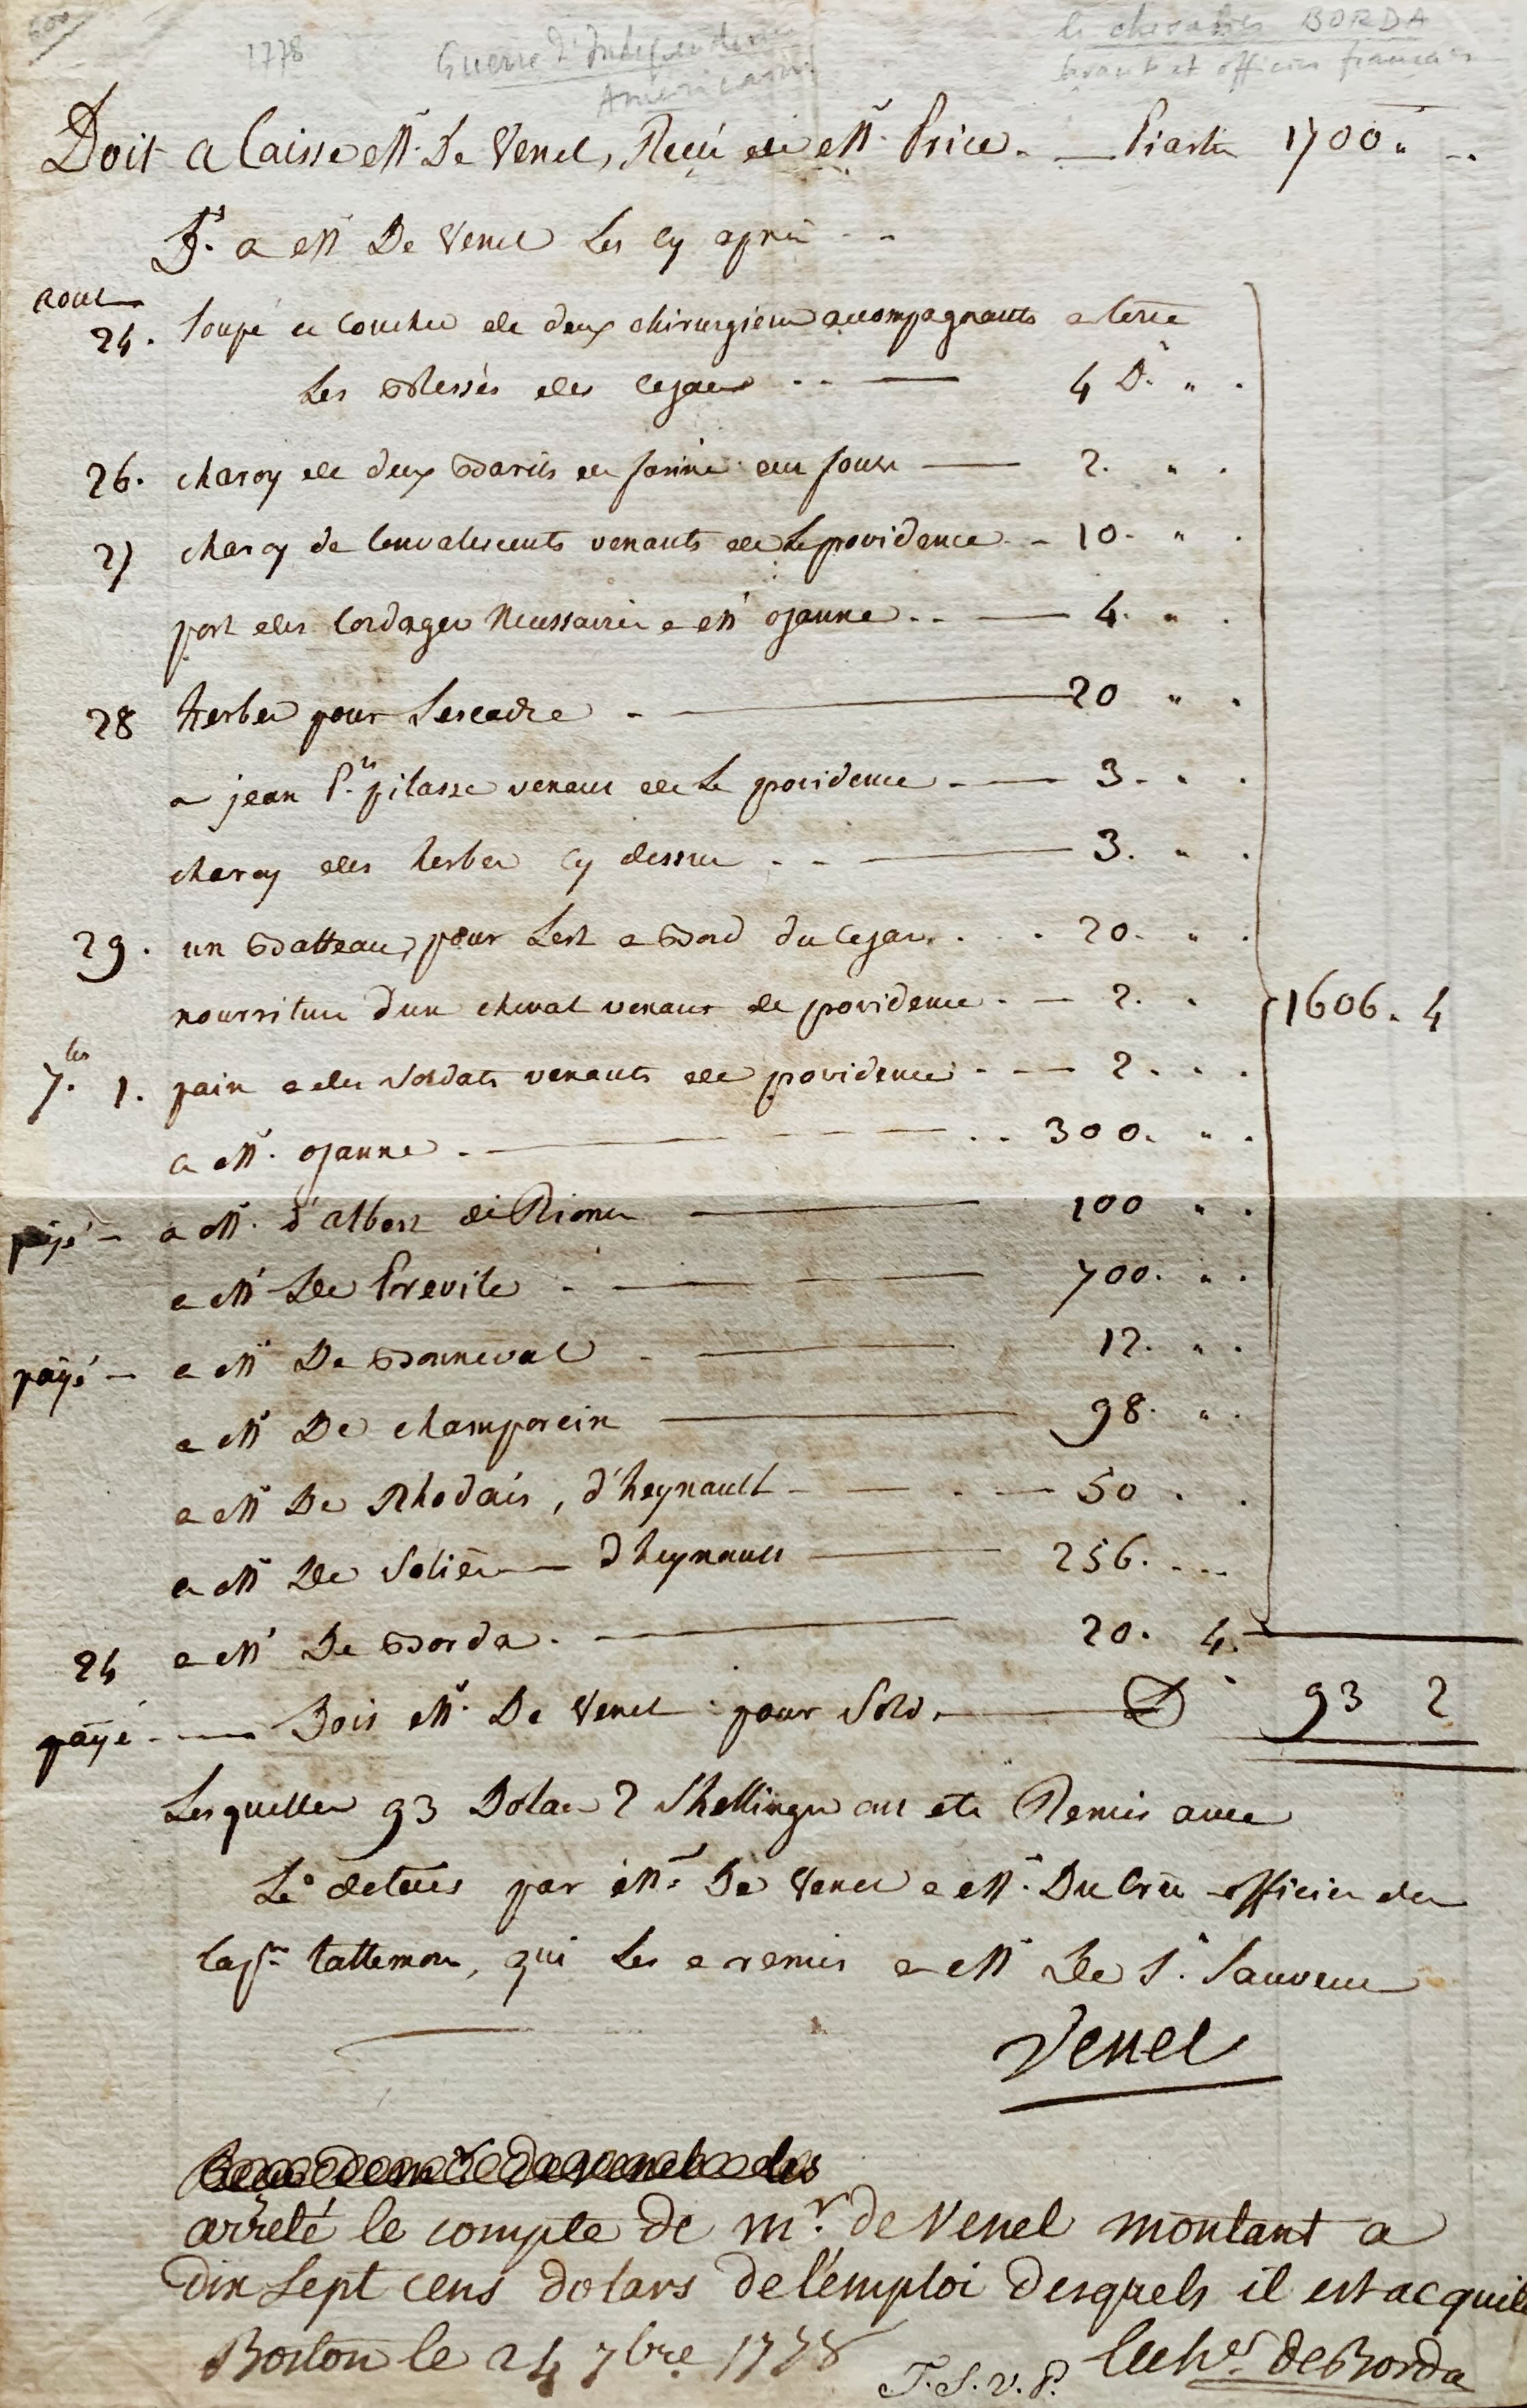 1778
Guerre d'Independance
Americaine
le chevalier BORDA
savant et officier français
Doit a Caisse Mr. De Venel, Reçu de Mr. Price. — Piastres 1700 " ..
a Mr De Venel Les Cy après - -
aout
24. Soupé et Couchée de deux chirurgiens accompagnants a terre
Les Blessés du Cesar - - — 4 Ds. " .
26. charoy de deux Barils de farine au four — 2. " .
27 charoy de Convalescents venants de La providence - - 10. " .
port des Cordages Necessaires a Mr ojanne - - — 4. " .
28 herbes pour Lescadre - — 20 " .
a jean pilasse venant de La providence - — 3 - " .
charoy des herbes Cy dessus - - — 3. " .
29. un Batteau pour Lest a Bord du Cesar . . . 20. " .
nourriture d'un cheval venant de providence - — 2. " .
1606. 4
7.bre 1. pain a des Soldats venants de providence - - — 2 . . .
a Mr. ojanne - — . . 300. " .
payé - a Mr. d'albert de Rions — 100 " .
a Mr De Previle - — 700. " .
payé - a Mr De Bonneval - — 12. " .
a Mr De champorcin — 98. " .
a Mr De Rhodais, d'heynault - — 50 . .
a Mr De Soliés — d'heynault — 256. . . .
24 a Mr De Borda. — 20. 4.
payé - — Doit Mr. De Venel pour Sold. — D 93 2
Lesquelles 93 Dolars 2 Shellings ont eté Remis avec
Le detail par Mr. De Venel a Mr. Du Cru officier du
Capne. tallemon, qui Les a remis a Mr De St. Sauveur
Venel
Reçu de mr de venel les
arreté le compte de mr. de Venel montant a
dix sept cens dolars de l'emploi desquels il est acquité
Boston le 24 7bre 1778 le cher. de Borda
T.S.V.P.